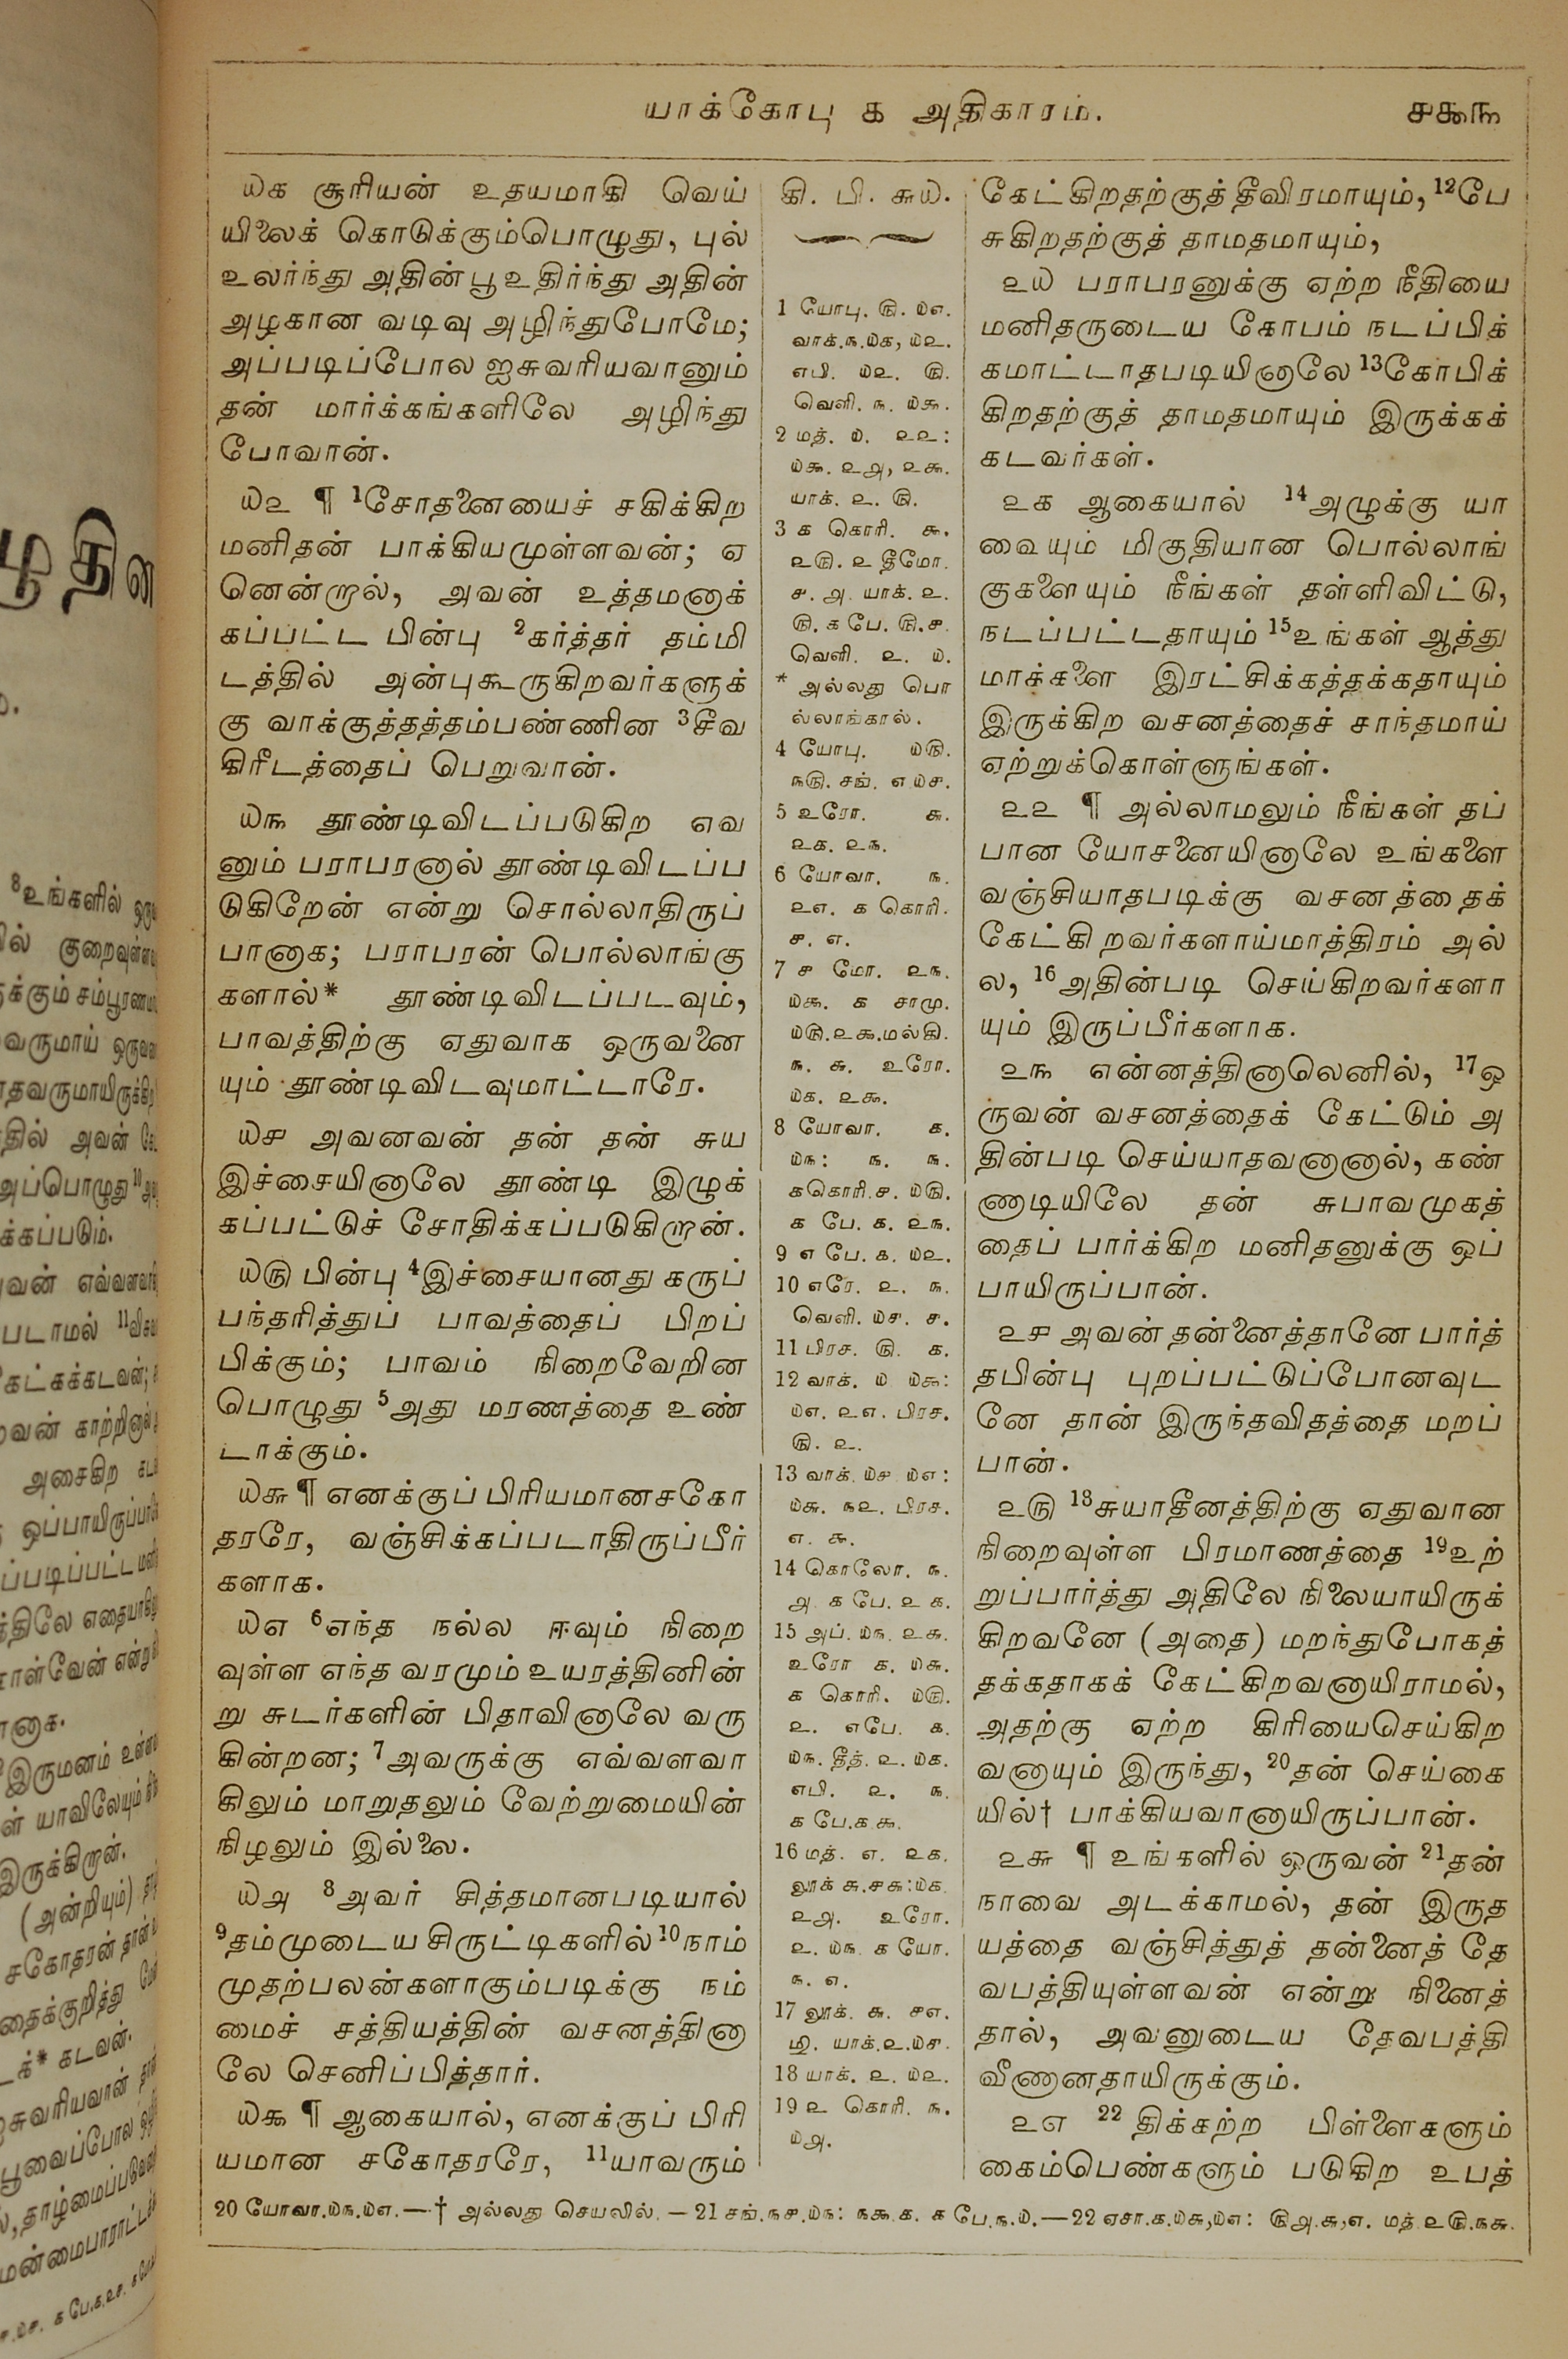 யாக்கோபு ௧ அதிகாரம். ௪௬௩
௰௧ சூரியன் உதயமாகி வெய்
யிலைக் கொடுக்கும்பொழுது, புல்
உலர்ந்து அதின் பூ உதிர்ந்து அதின்
அழகான வடிவு அழிந்துபோமே;
அப்படிப்போல ஐசுவரியவானும்
தன் மார்க்கங்களிலே அழிந்து
போவான்.
௰௨ ¶ 1சோதனையைச் சகிக்கிற
மனிதன் பாக்கியமுள்ளவன்; ஏ
னென்றால், அவன் உத்தமனாக்
கப்பட்ட பின்பு 2கர்த்தர் தம்மி
டத்தில் அன்புகூருகிறவர்களுக்
கு வாக்குத்தத்தம்பண்ணின 3சீவ
கிரீடத்தைப் பெறுவான்.
௰௩ தூண்டிவிடப்படுகிற எவ
னும் பராபரனால் தூண்டிவிடப்ப
டுகிறேன் என்று சொல்லாதிருப்
பானாக; பராபரன் பொல்லாங்கு
களால்* தூண்டிவிடப்படவும்,
பாவத்திற்கு ஏதுவாக ஒருவனை
யும் தூண்டிவிடவுமாட்டாரே.
௰௪ அவனவன் தன் தன் சுய
இச்சையினாலே தூண்டி இழுக்
கப்பட்டுச் சோதிக்கப்படுகிறான்.
௰௫ பின்பு 4இச்சையானது கருப்
பந்தரித்துப் பாவத்தைப் பிறப்
பிக்கும்; பாவம் நிறைவேறின
பொழுது 5அது மரணத்தை உண்
டாக்கும்.
௰௬ ¶ எனக்குப் பிரியமானசகோ
தரரே, வஞ்சிக்கப்படாதிருப்பீர்
களாக.
௰௭ 6எந்த நல்ல ஈவும் நிறை
வுள்ள எந்த வரமும் உயரத்தினின்
று சுடர்களின் பிதாவினாலே வரு
கின்றன; 7அவருக்கு எவ்வளவா
கிலும் மாறுதலும் வேற்றுமையின்
நிழலும் இல்லை.
௰௮ 8அவர் சித்தமானபடியால்
9தம்முடைய சிருட்டிகளில் 10நாம்
முதற்பலன்களாகும்படிக்கு நம்
மைச் சத்தியத்தின் வசனத்தினா
லே செனிப்பித்தார்.
௰௯ ¶ ஆகையால், எனக்குப் பிரி
யமான சகோதரரே, 11யாவரும்
கி. பி. ௬௰.
1 யோபு. ௫. ௰௭.
வாக்.௩.௰௧, ௰௨.
எபி. ௰௨. ௫.
வெளி. ௩. ௰௯.
2 மத். ௰. ௨௨:
௰௯. ௨௮, ௨௯.
யாக். ௨. ௫.
3 ௧ கொரி. ௯.
௨௫. ௨ தீமோ.
௪. ௮. யாக். ௨.
௫. ௧ பே. ௫.௪.
வெளி. ௨. ௰.
* அல்லது பொ
ல்லாங்கால்.
4 யோபு. ௰௫.
௩௫. சங். ௭.௰௪.
5 உரோ. ௬.
௨௧. ௨௩.
6 யோவா. ௩.
௨௭. ௧ கொரி.
௪. ௭.
7 ௪ மோ. ௨௩.
௰௯. ௧ சாமு.
௰௫.௨௯.மல்கி.
௩. ௬. உரோ.
௰௧. ௨௯.
8 யோவா. ௧.
௰௩: ௩. ௩.
௧கொரி.௪. ௰௫.
௧ பே. ௧. ௨௩.
9 எ பே. ௧. ௰௨.
10 எரே. ௨. ௩.
வெளி. ௰௪. ௪.
11 பிரச. ௫. ௧.
12 வாக். ௰ ௰௯:
௰௭. ௨௭. பிரச.
௫. ௨.
13 வாக். ௰௪ ௰௭:
௰௬. ௩௨. பிரச.
௭. ௯.
14 கொலோ. ௩.
௮. ௧ பே. ௨ ௧.
15 அப். ௰௩. ௨௬.
உரோ ௧. ௰௬.
௧ கொரி. ௰௫.
௨. எபே. ௧.
௰௩. தீத். ௨. ௰௧.
எபி. ௨. ௩.
௧ பே.௧.௯.
16 மத். ௭. ௨௧.
லூக் ௬.௪௬:௰௧
௨௮. உரோ.
௨. ௰௩ ௧ யோ.
௩. ௭.
17 லூக். ௬. ௪௭.
யாக்.௨.௰௪.
18 யாக். ௨. ௰௨.
19 ௨ கொரி. ௩.
௰௮.
கேட்கிறதற்குத் தீவிரமாயும், 12பே
சுகிறதற்குத் தாமதமாயும்,
௨௰ பராபரனுக்கு ஏற்ற நீதியை
மனிதருடைய கோபம் நடப்பிக்
கமாட்டாதபடியினாலே 13கோபிக்
கிறதற்குத் தாமதமாயும் இருக்கக்
கடவர்கள்.
௨௧ ஆகையால் 14அழுக்கு யா
வையும் மிகுதியான பொல்லாங்
குகளையும் நீங்கள் தள்ளிவிட்டு,
நடப்பட்டதாயும் 15உங்கள் ஆத்து
மாக்களை இரட்சிக்கத்தக்கதாயும்
இருக்கிற வசனத்தைச் சாந்தமாய்
ஏற்றுக்கொள்ளுங்கள்.
௨௨ ¶ அல்லாமலும் நீங்கள் தப்
பான யோசனையினாலே உங்களை
வஞ்சியாதபடிக்கு வசனத்தைக்
கேட்கிறவர்களாய்மாத்திரம் அல்
ல, 16அதின்படி செய்கிறவர்களா
யும் இருப்பீர்களாக.
௨௩ என்னத்தினாலெனில், 17ஒ
ருவன் வசனத்தைக் கேட்டும் அ
தின்படி செய்யாதவனானால், கண்
ணாடியிலே தன் சுபாவமுகத்
தைப் பார்க்கிற மனிதனுக்கு ஒப்
பாயிருப்பான்.
௨௪ அவன் தன்னைத்தானே பார்த்
தபின்பு புறப்பட்டுப்போனவுட
னே தான் இருந்தவிதத்தை மறப்
பான்.
௨௫ 18சுயாதீனத்திற்கு ஏதுவான
நிறைவுள்ள பிரமாணத்தை 19உற்
றுப்பார்த்து அதிலே நிலையாயிருக்
கிறவனே (அதை) மறந்துபோகத்
தக்கதாகக் கேட்கிறவனாயிராமல்,
அதற்கு ஏற்ற கிரியைசெய்கிற
வனாயும் இருந்து, 20தன் செய்கை
யில்† பாக்கியவானாயிருப்பான்.
௨௬ ¶ உங்களில் ஒருவன் 21தன்
நாவை அடக்காமல், தன் இருத
யத்தை வஞ்சித்துத் தன்னைத் தே
வபத்தியுள்ளவன் என்று நினைத்
தால், அவனுடைய தேவபத்தி
வீணானதாயிருக்கும்.
௨௭ 22 திக்கற்ற பிள்ளைகளும்
கைம்பெண்களும் படுகிற உபத்
20 யோவா.௰௩.௰௭.—† அல்லது செயலில்.—21 சங்.௩௪.௰௩: ௩௯.௧. ௧ பே.௩.௰.—22 ஏசா.௧.௰௬,௰௭: ௫௮.௬,௭. மத்.௨௫.௩௬.